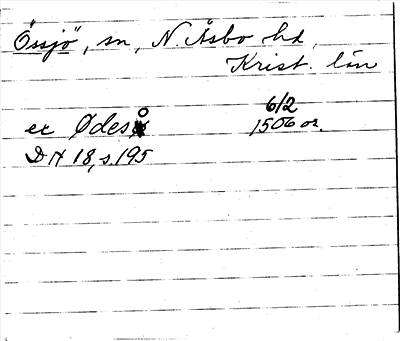 Össjö, sn, N. Åsbo hd,
Krist. län
6/2
er Ødeså 1506 or.
DN 18, s. 195